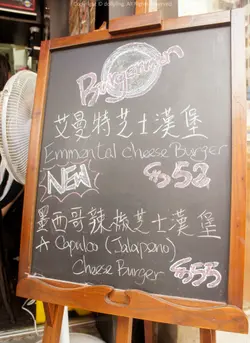 Burgerman
艾曼特芝士漢堡
Emmental Cheese Burger
NEW $52
墨西哥辣椒芝士漢堡
Acapulco (Jalapeno)
Cheese Burger $55